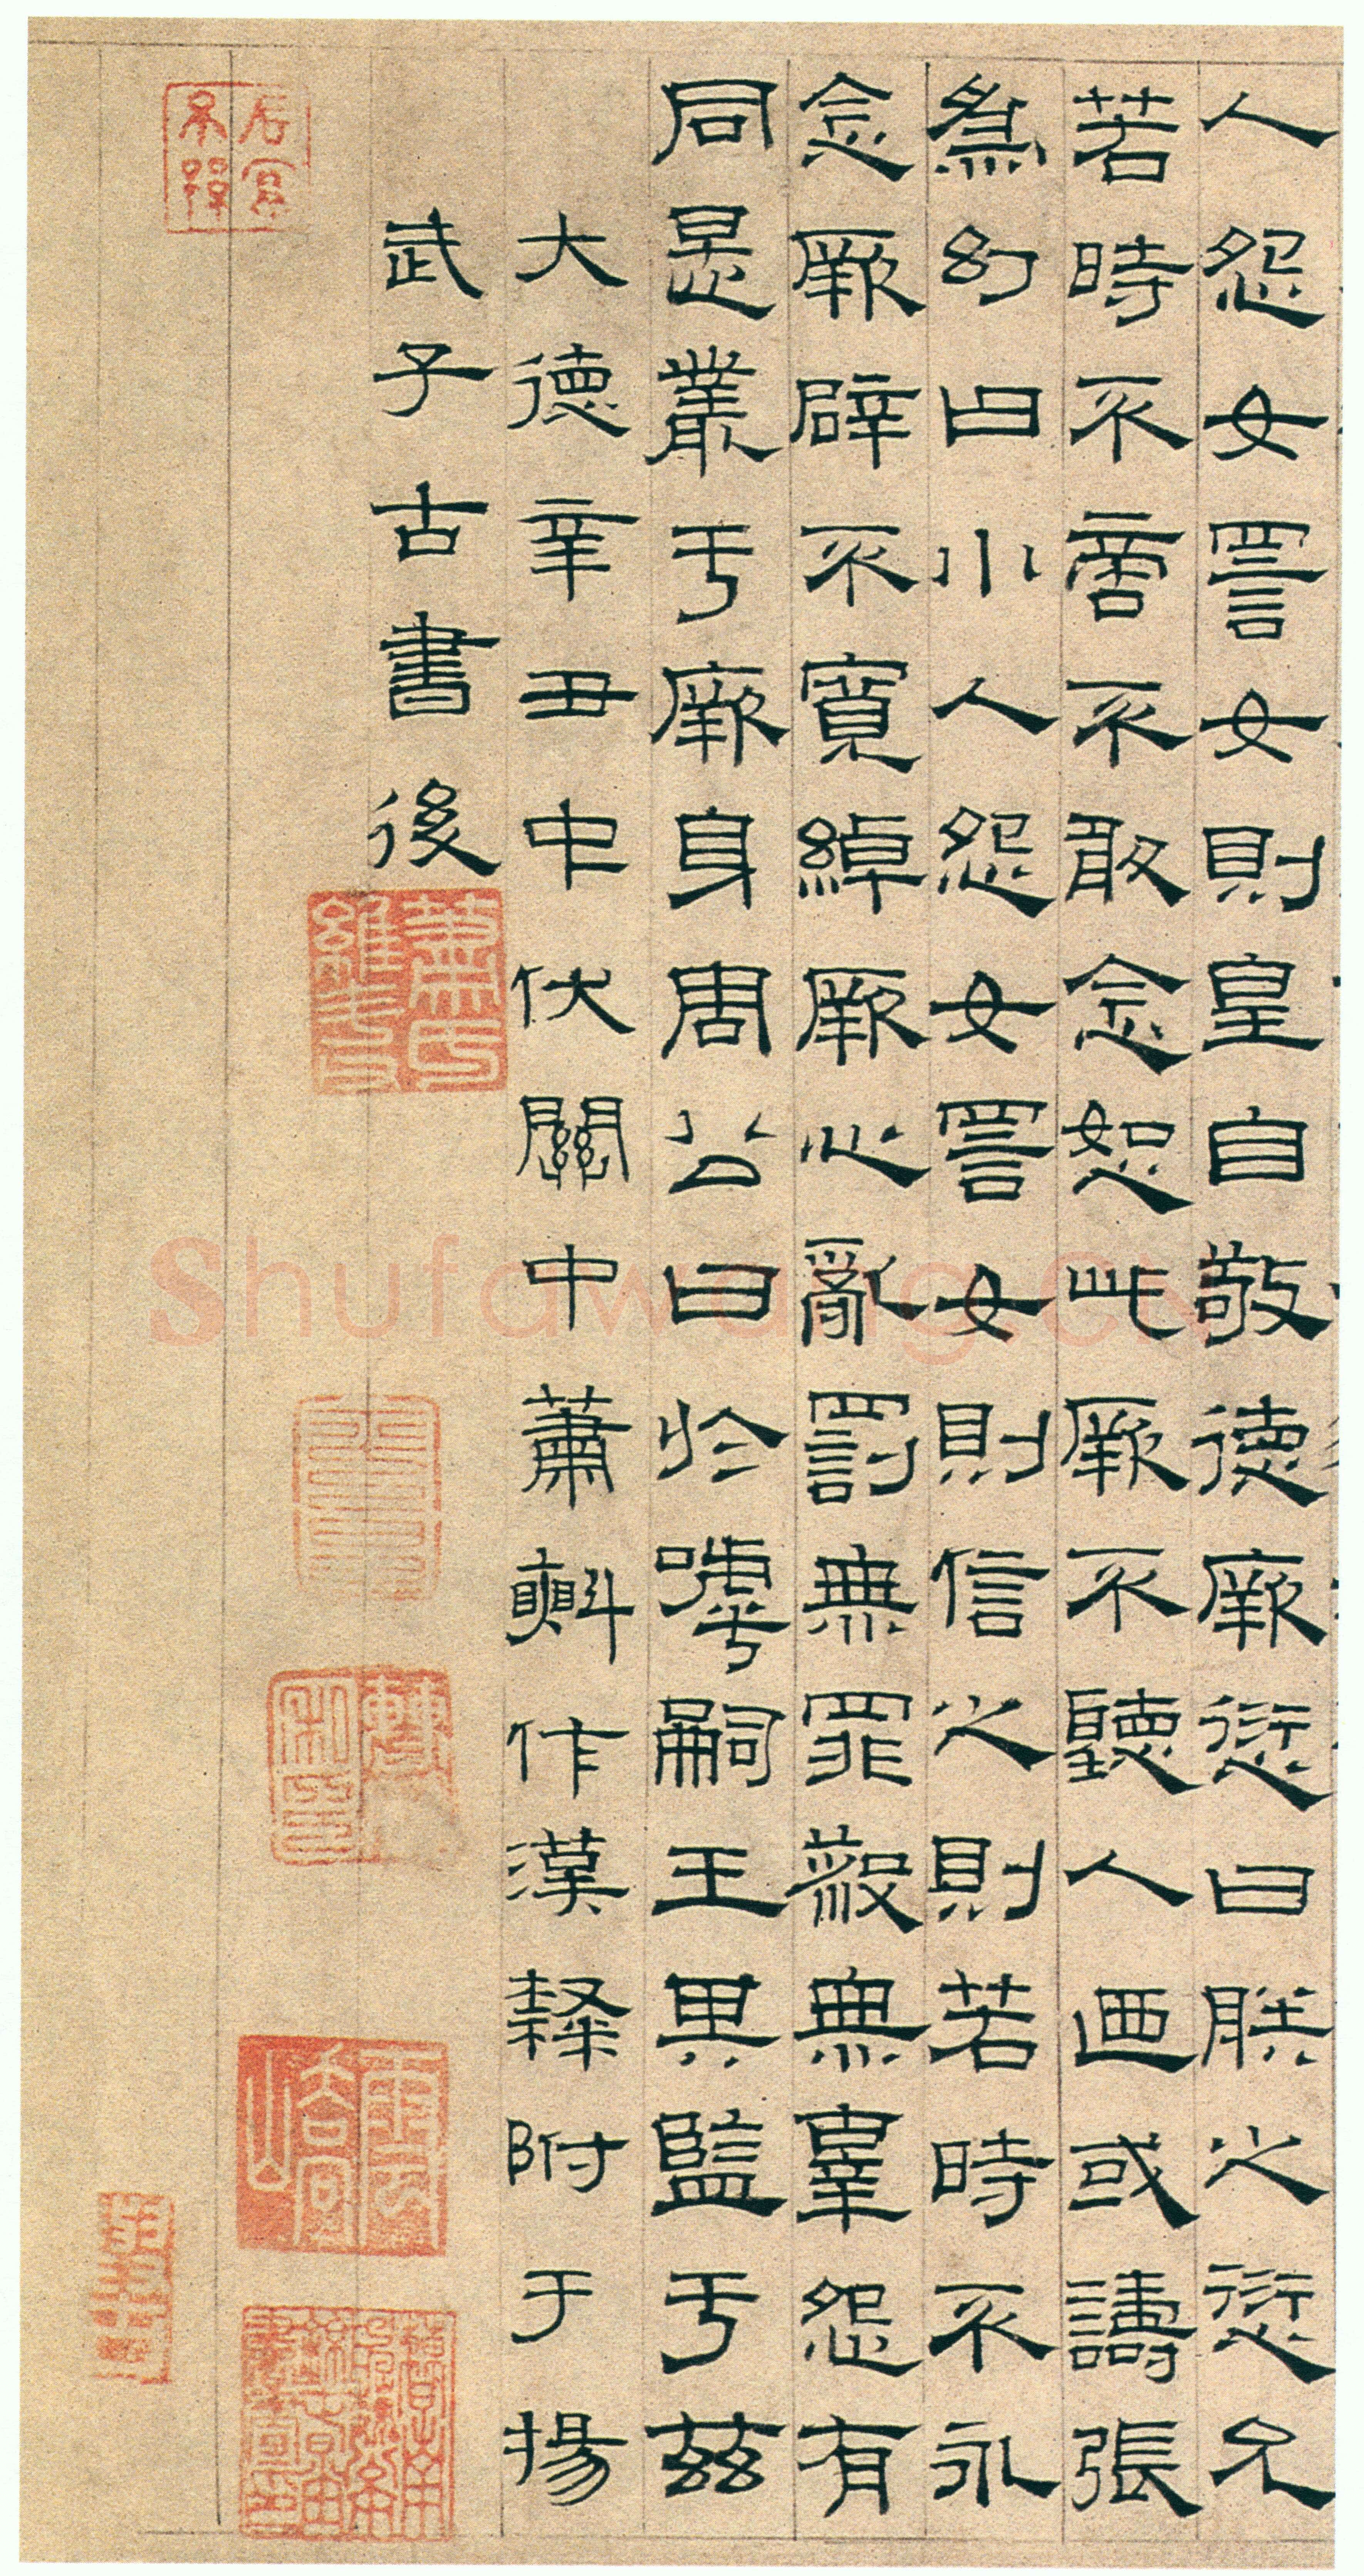 人怨女詈女則皇自敬德厥愆曰朕之愆允
若時不啻不敢含怒此厥不聽人乃或譸張
為幻曰小人怨女詈女則信之則若時不永
念厥辟不寬綽厥心亂罰無罪殺無辜怨有
同是叢于厥身周公曰於嘑嗣王其監于茲
大德辛丑中伏關中蕭𣂏作漢隸附于揚
武子古書後
蕭氏維斗
Shufawang.cn